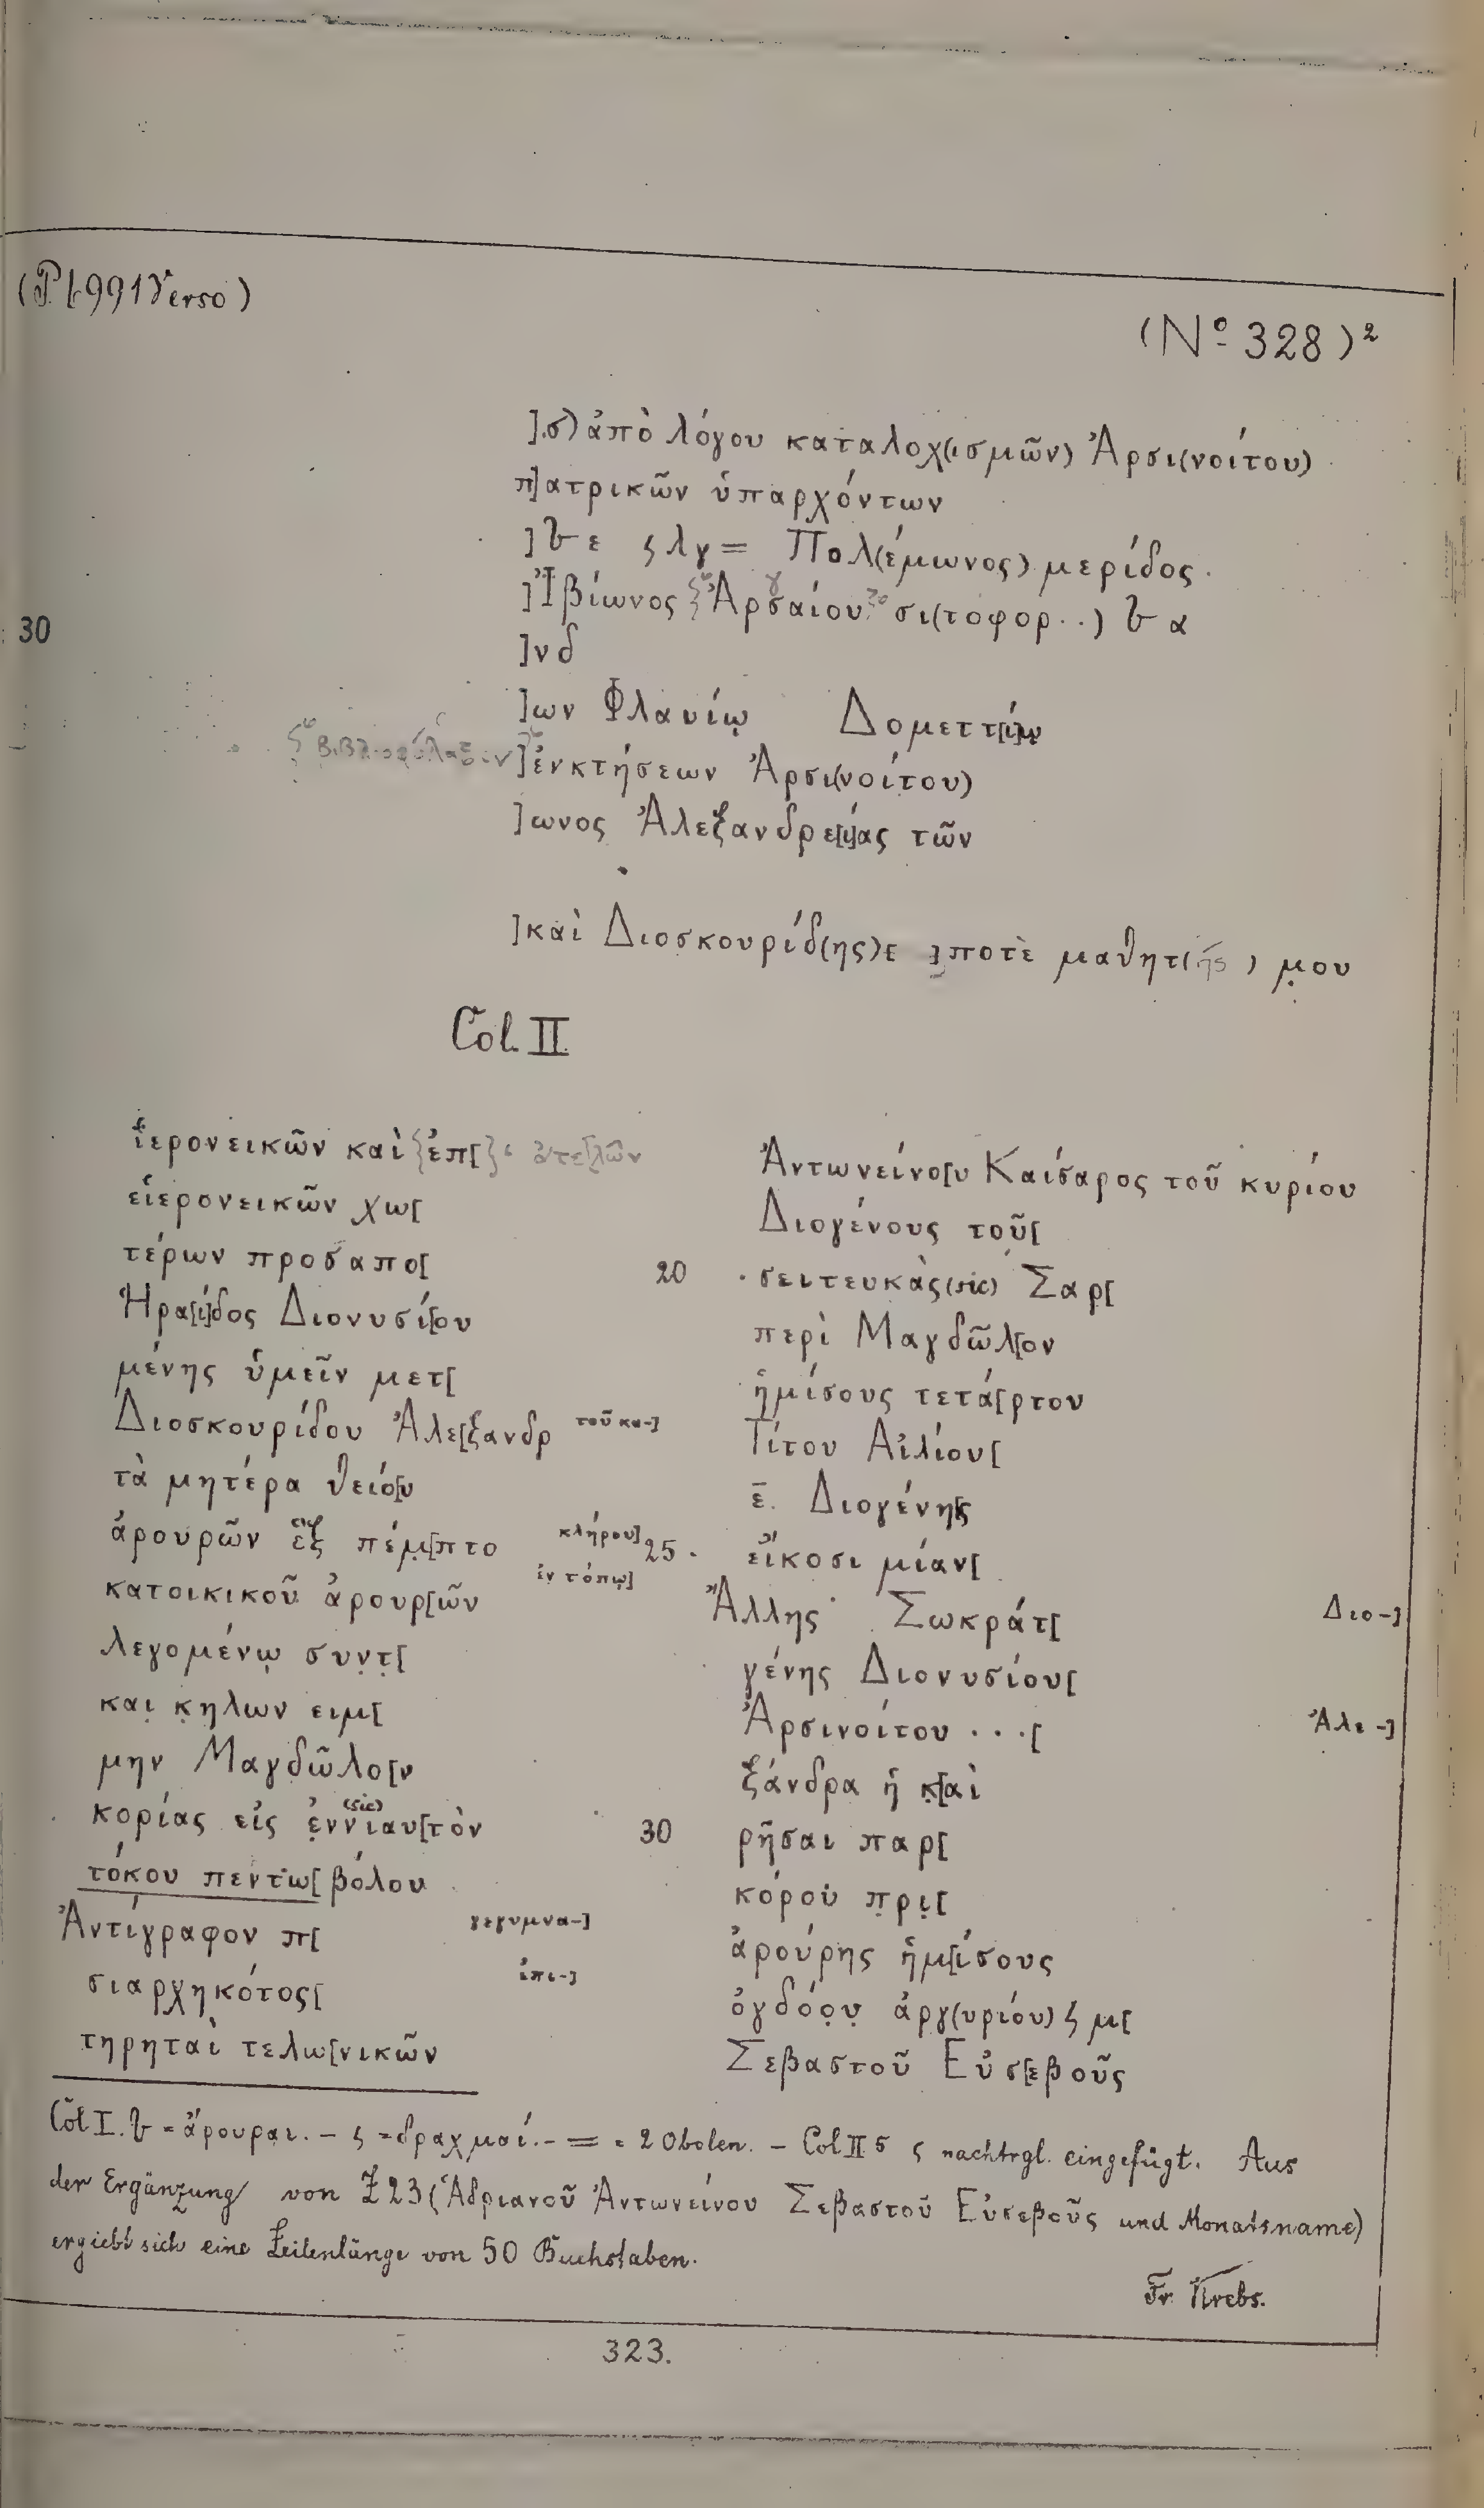 (P. 6991 Verso)
(Nº 328)²
].σ) ἀπὸ λόγου καταλοχ(ισμῶν) Ἀρσι(νοίτου)
π]ατρικῶν ὑπαρχόντων
] ε ϛ λγ = Πολ(έμωνος) μερίδος
]Ἰβίωνος Ἀρσαίου σι(τοφορ..) α
30 ]νδ
]ων Φλαυίῳ Δομεττ[ί]ῳ
]ἐνκτήσεων Ἀρσι(νοίτου)
]ωνος Ἀλεξανδρε[ί]ας τῶν
]καὶ Διοσκουρίδ(ης) ε ]ποτὲ μαθητ(ής) μου
Col. II
ἱερονεικῶν καὶ {ἐπ[}
εἱερονεικῶν χω[
τέρων προσαπο[
Ἡρα[ί]δος Διονυσί[ου
μένης ὑμεῖν μετ[
Διοσκουρίδου Ἀλε[ξανδρ τοῦ κα-]
τὰ μητέρα θείο[υ
ἀρουρῶν ἓξ πέμ[πτο κλήρου]
κατοικικοῦ ἀρουρ[ῶν ἐν τόπῳ]
λεγομένῳ συντ[
και κηλων ειμ[
μην Μαγδῶλο[ν
κορίας εἰς ἐννιαυ[τὸν (sic)
τόκου πεντω[βόλου
Ἀντίγραφον π[ γεγυμνα-]
σιαρχηκότος[ ἐπι-]
τηρηταὶ τελω[νικῶν
Ἀντωνείνο[υ Καίσαρος τοῦ κυρίου
Διογένους τοῦ[
20 σειτευκὰς (sic) Σαρ[
περὶ Μαγδῶλ[ον
ἡμίσους τετά[ρτου
Τίτου Αἰλίου[
ε̄. Διογένη[ς
25 εἴκοσι μίαν[
Ἄλλης Σωκράτ[ Διο-]
γένης Διονυσίου[
Ἀρσινοίτου ...[ Ἀλε-]
ξάνδρα ἡ κ[αὶ
30 ρῆσαι παρ[
κόρου πρι[
ἀρούρης ἡμ[ίσους
ὀγδόου ἀργ(υρίου) ϛ μ[
Σεβαστοῦ Εὐσ[εβοῦς
= ἄρουραι. – ϛ = δραχμαί. – = = 2 Obolen. – Col II 5 ς nachtrgl. eingefügt. Aus
der Ergänzung von Z 23 (Ἁδριανοῦ Ἀντωνείνου Σεβαστοῦ Εὐσεβοῦς und Monatsname)
ergiebt sich eine Zeilenlänge von 50 Buchstaben.
Fr. Krebs.
323.